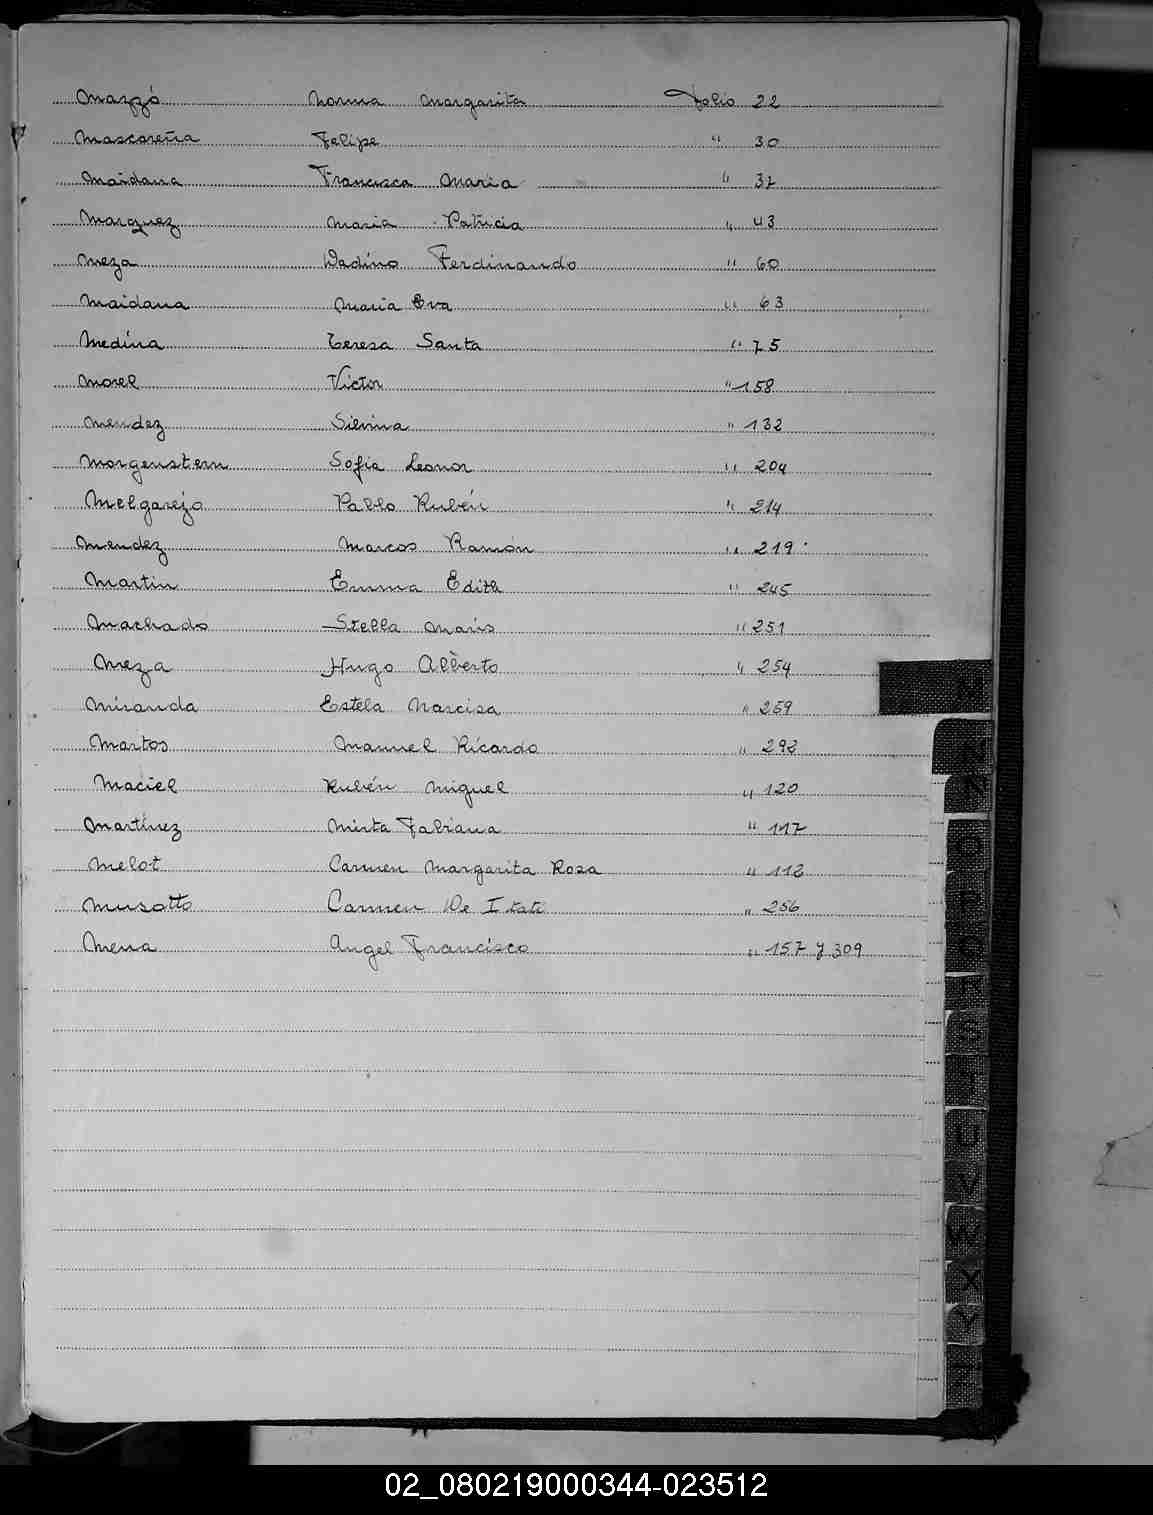 Mazzó Norma Margarita Folio 22
Mascareña Felipe " 30
Maidana Francisca Maria " 37
Marquez Maria Patricia " 43
Meza Wadino Ferdinando " 60
Maidana Maria Eva " 63
Medina Teresa Santa " 75
Morel Victor " 158
Mendez Silvina " 132
Morgenstern Sofia Leonor " 204
Melgarejo Pablo Rubén " 214
Mendez Marcos Ramón " 219
Martin Emma Edith " 245
Machado Stella Maris " 251
Meza Hugo Alberto " 254
Miranda Estela Narcisa " 259
Martos Manuel Ricardo " 293
Maciel Rubén Miguel " 120
Martínez Mirta Fabiana " 117
Melot Carmen Margarita Rosa " 113
Musotto Carmen De Itati " 256
Mena Angel Francisco " 157 y 309
M
N
Ñ
O
P
Q
R
S
T
U
V
W
X
Y
02_080219000344-023512